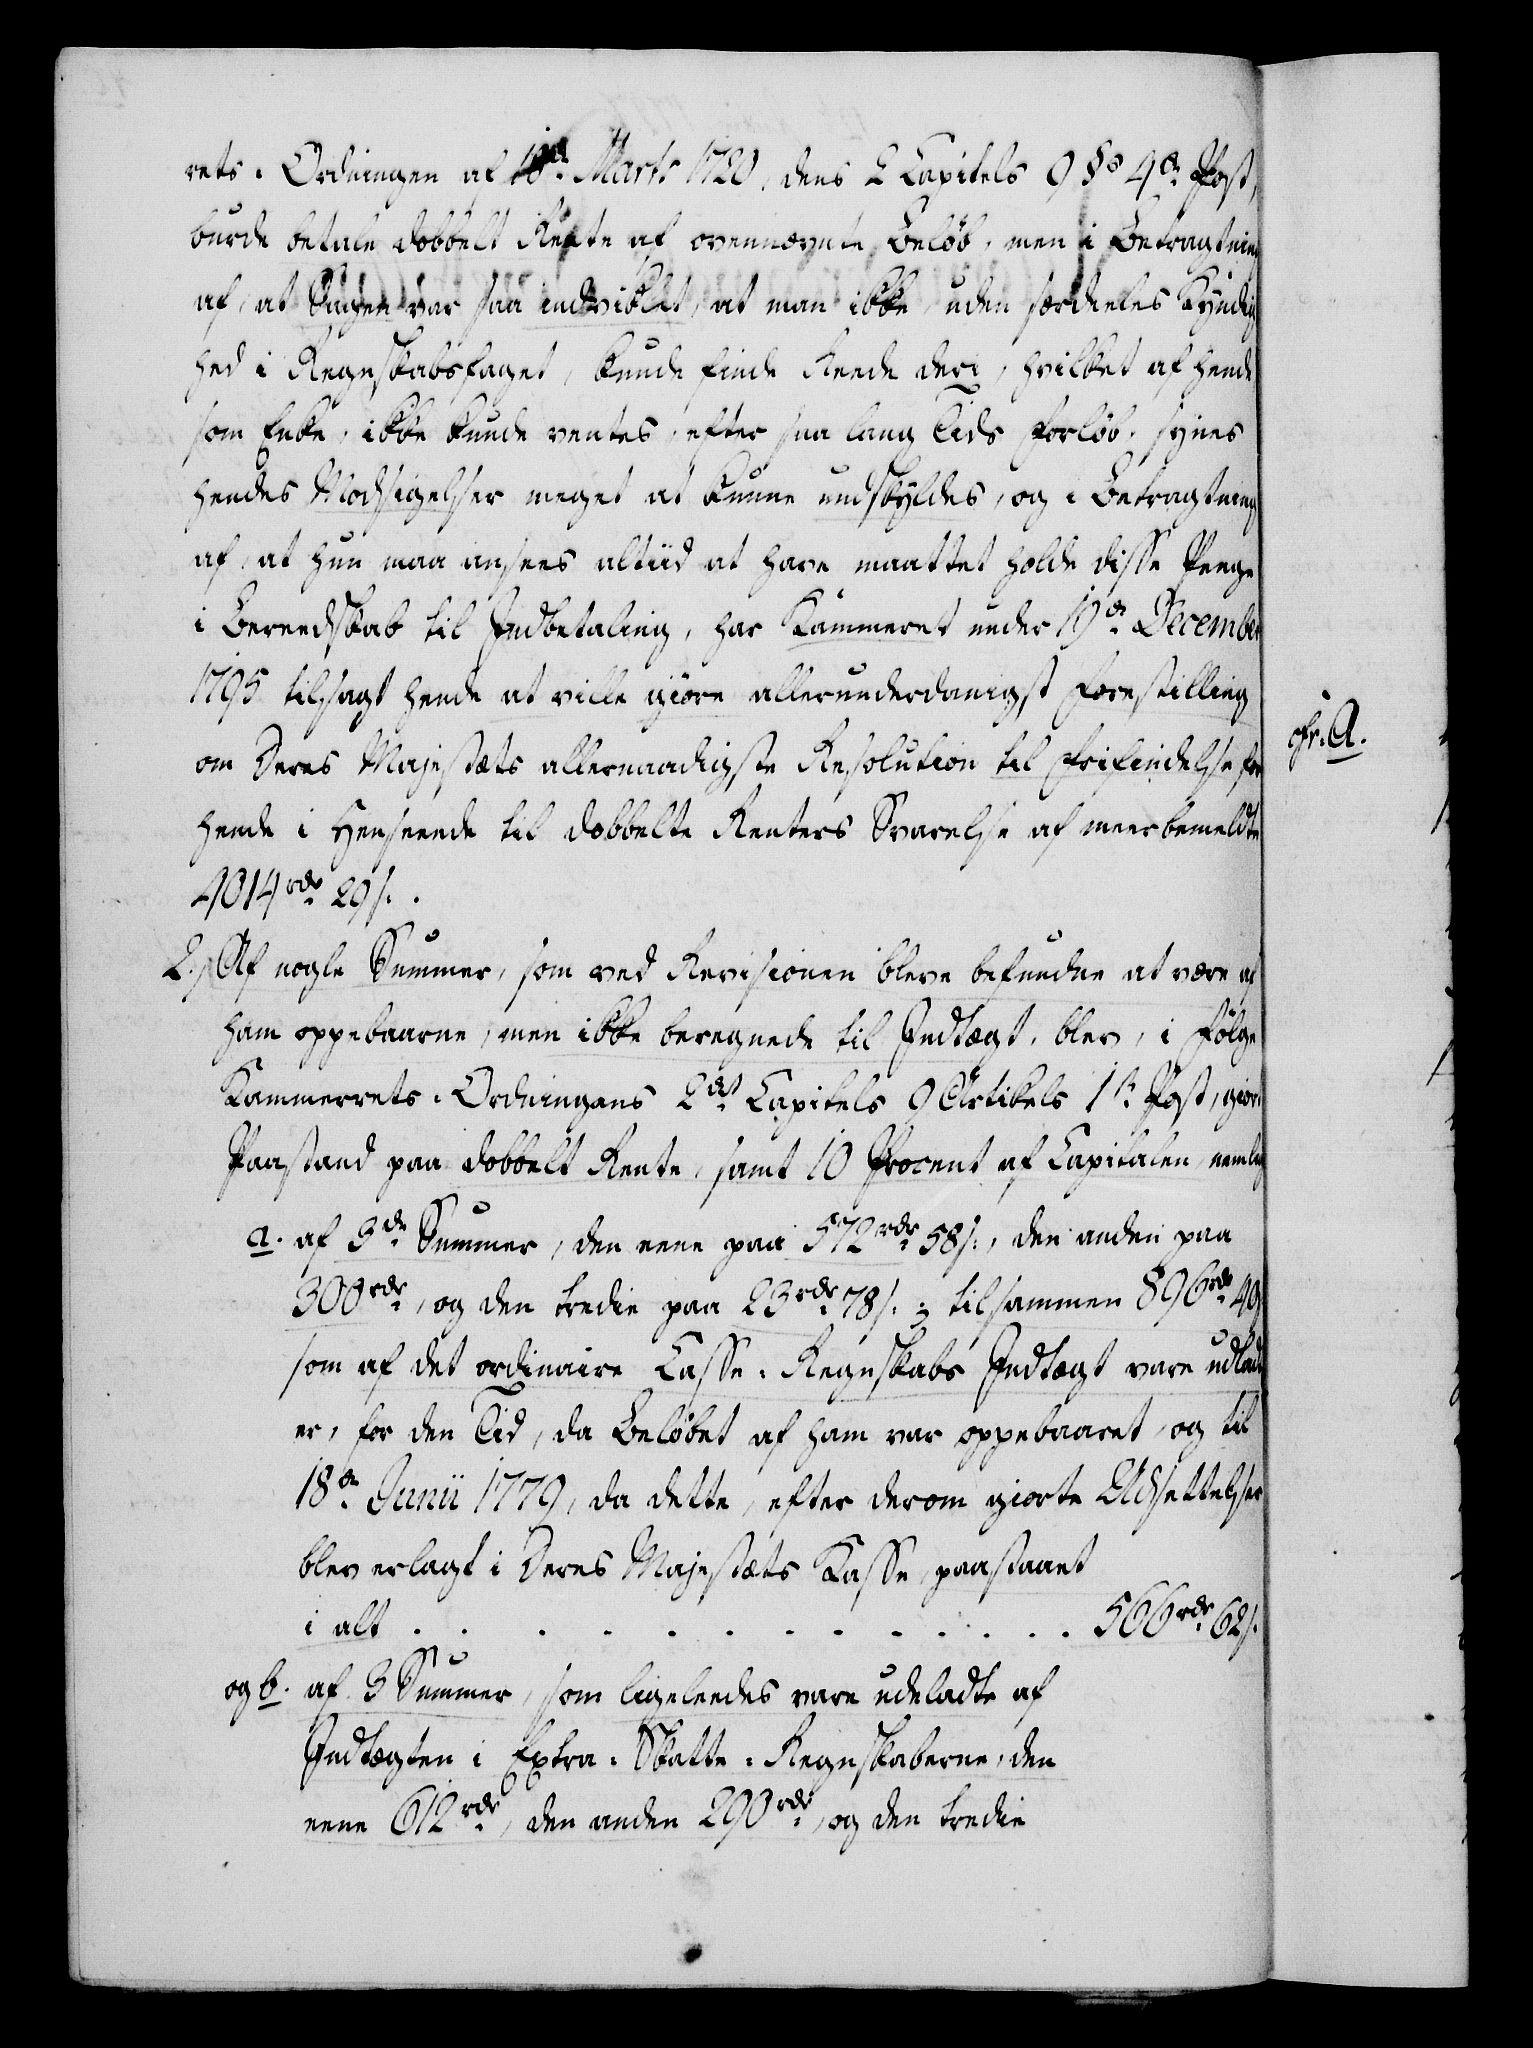 rets-Ordningen af Marts 1720, dens 2 Capitels 9 §s 4de Post,
burde betale dobbelt Rente af ovennævnte Beløb, men i Betragtning
af, at Sagen var saa indviklet, at man ikke, uden særdeles Kyndig
hed i Regnskabsfaget, kunde finde Reede deri, hvilket af hende
som Enke, ikke kunde ventes, efter saa lang Tids Forløb, synes
hendes Modsigelser meget at kunne undskyldes, og i Betragtning
af, at hun maa ansees altiid at have maattet holde disse Penge
i Bereedskab til Indbetaling, har Kammeret under 19de December
1795 tilsagt hende at ville giøre allerunderdanigst Forestilling
om Deres Majestæts allernaadigste Resolution til Frifindelse for
hende i Henseende til dobbelte Renters Svarelse af meerbemeldte
4014rdr 29s.
cfr. A.
2., Af nogle Summer, som ved Revisionen bleve befundne at være af
ham oppebaarne, men ikke beregnede til Indtægt, blev, i Følge
Kammerrets-Ordningens 2det Capitels 9 Artikels 1te Post, giort
Paastand paa dobbelt Rente, samt 10 Procent af Capitalen, nemlig
a. af 3de Summer, den eene paa 572rdr 58s., den anden paa
300rdr, og den tredie paa 23rdr 78s.; tilsammen 896rdr 40
som af det ordinaire Casse-Regnskabs Indtægt vare udladt
er, for den Tid, da Beløbet af ham var oppebaaret, og til
18de Junii 1779, da dette, efter derom giorte Udsettelser
blev erlagt i Deres Majestæts Kasse, paastaaet
i alt . . . . . . . . . . . . 566rdr 62s.
og b. af 3 Summer, som ligeleedes vare udeladte af
Indtægten i Extra-Skatte-Regnskaberne, den
eene 612rdr, den anden 290rdr, og den tredie